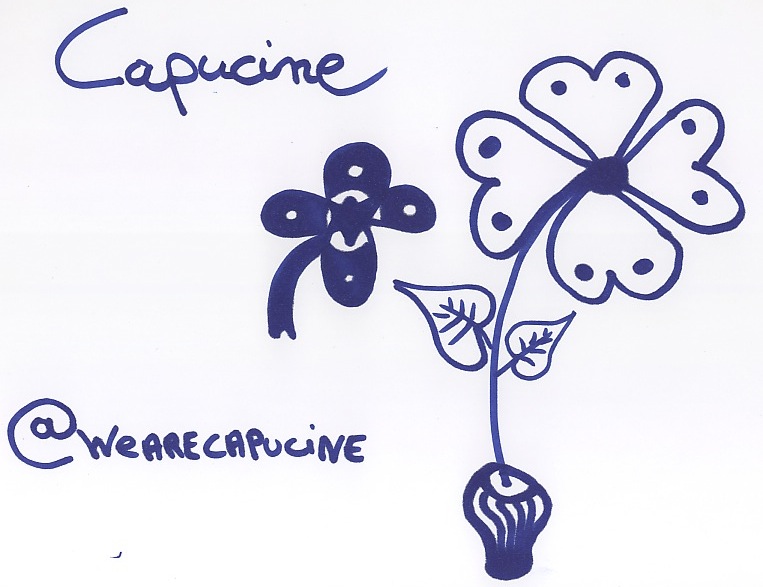 Capucine
@WeARECAPUCiNE